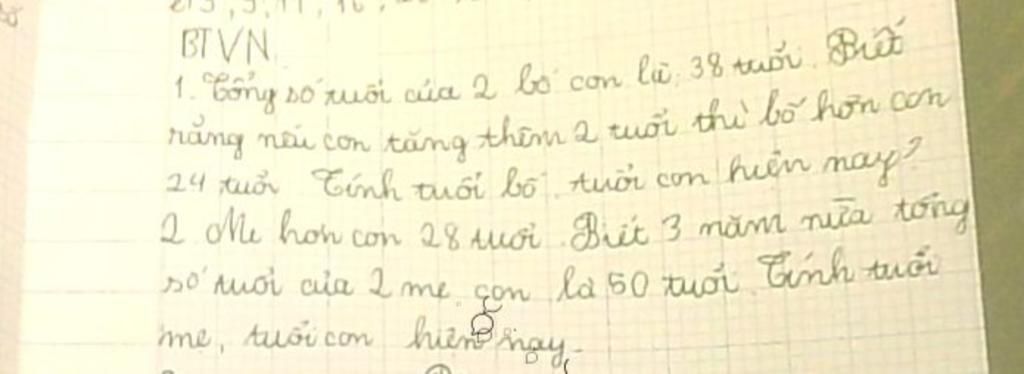 BTVN.
1. Tổng số tuổi của 2 bố con là 38 tuổi. Biết
rằng nếu con tăng thêm 2 tuổi thì bố hơn con
24 tuổi Tính tuổi bố tuổi con hiện nay?
2 Mẹ hơn con 28 tuổi. Biết 3 năm nữa tổng
số tuổi của 2 mẹ con là 50 tuổi Tính tuổi
mẹ, tuổi con hiện nay.